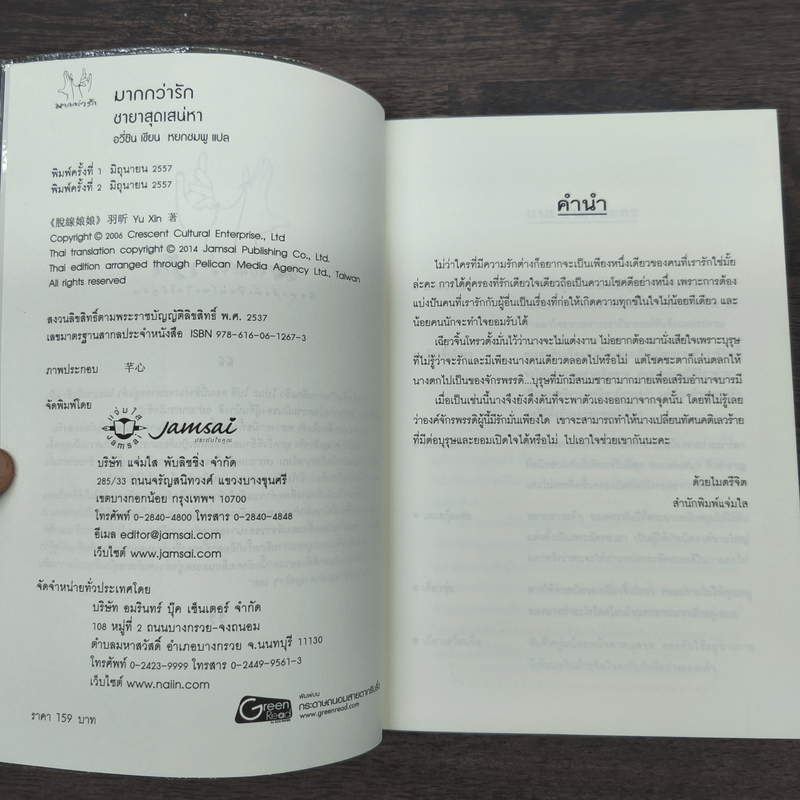 มากกว่ารัก
มากกว่ารัก
ชายาสุดเสน่หา
อวี่ซิน เขียน หยกชมพู แปล
พิมพ์ครั้งที่ 1 มิถุนายน 2557
พิมพ์ครั้งที่ 2 มิถุนายน 2557
《脫線娘娘》羽昕 Yu Xin 著
Copyright © 2006 Crescent Cultural Enterprise., Ltd
Thai translation copyright © 2014 Jamsai Publishing Co., Ltd.
Thai edition arranged through Pelican Media Agency Ltd., Taiwan
All rights reserved
สงวนลิขสิทธิ์ตามพระราชบัญญัติลิขสิทธิ์ พ.ศ. 2537
เลขมาตรฐานสากลประจำหนังสือ ISBN 978-616-06-1267-3
ภาพประกอบ 芊心
จัดพิมพ์โดย
แจ่มใส
JAMSAI
Jamsai
ประทับใจคุณ
บริษัท แจ่มใส พับลิชชิ่ง จำกัด
285/33 ถนนจรัญสนิทวงศ์ แขวงบางขุนศรี
เขตบางกอกน้อย กรุงเทพฯ 10700
โทรศัพท์ 0-2840-4800 โทรสาร 0-2840-4848
อีเมล editor@jamsai.com
เว็บไซต์ www.jamsai.com
จัดจำหน่ายทั่วประเทศโดย
บริษัท อมรินทร์ บุ๊ค เซ็นเตอร์ จำกัด
108 หมู่ที่ 2 ถนนบางกรวย-จงถนอม
ตำบลมหาสวัสดิ์ อำเภอบางกรวย จ.นนทบุรี 11130
โทรศัพท์ 0-2423-9999 โทรสาร 0-2449-9561-3
เว็บไซต์ www.naiin.com
ราคา 159 บาท
Green Read
พิมพ์บน
กระดาษถนอมสายตากรีนรี้ด
www.greenread.com
คำนำ
ไม่ว่าใครที่มีความรักต่างก็อยากจะเป็นเพียงหนึ่งเดียวของคนที่เรารักใช่มั้ย
ล่ะคะ การได้คู่ครองที่รักเดียวใจเดียวถือเป็นความโชคดีอย่างหนึ่ง เพราะการต้อง
แบ่งปันคนที่เรารักกับผู้อื่นเป็นเรื่องที่ก่อให้เกิดความทุกข์ในใจไม่น้อยทีเดียว และ
น้อยคนนักจะทำใจยอมรับได้
เฉียวจิ้นโหรวตั้งมั่นไว้ว่านางจะไม่แต่งงาน ไม่อยากต้องมานั่งเสียใจเพราะบุรุษ
ที่ไม่รู้ว่าจะรักและมีเพียงนางคนเดียวตลอดไปหรือไม่ แต่โชคชะตาก็เล่นตลกให้
นางตกไปเป็นของจักรพรรดิ...บุรุษที่มักมีสนมชายามากมายเพื่อเสริมอำนาจบารมี
เมื่อเป็นเช่นนี้นางจึงยังดึงดันที่จะพาตัวเองออกมาจากจุดนั้น โดยที่ไม่รู้เลย
ว่าองค์จักรพรรดิผู้นี้มีรักมั่นเพียงใด เขาจะสามารถทำให้นางเปลี่ยนทัศนคติเลวร้าย
ที่มีต่อบุรุษและยอมเปิดใจได้หรือไม่ ไปเอาใจช่วยเขากันนะคะ
ด้วยไมตรีจิต
สำนักพิมพ์แจ่มใส